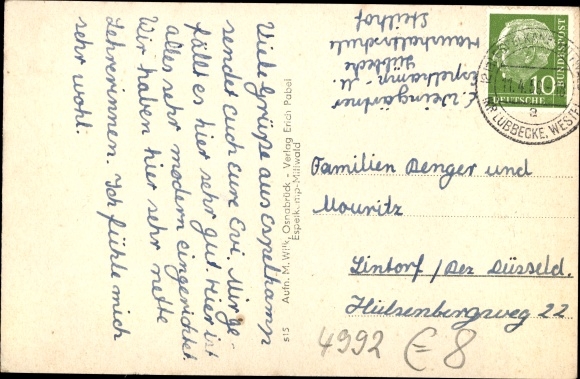 Viele Grüße aus Espelkamp
sendet Euch Eure Evi. Mir ge-
fällt es hier sehr gut. Hier ist
alles sehr modern eingerichtet.
Wir haben hier sehr nette
Lehrerinnen. Ich fühle mich
sehr wohl.
s15 Aufn. M. Wilk, Osnabrück - Verlag Erich Pabel
Espelkamp-Mittwald
E. Weingärtner
Espelkamp - M.
Lübbecke
Haushaltsschule
Steilhof
DEUTSCHE
BUNDESPOST
10
a
KR. LÜBBECKE, WESTF.
Familien Benger und
Mouritz
Lintorf / Bez Düsseld.
Hülsenbergweg 22
4992 € 8